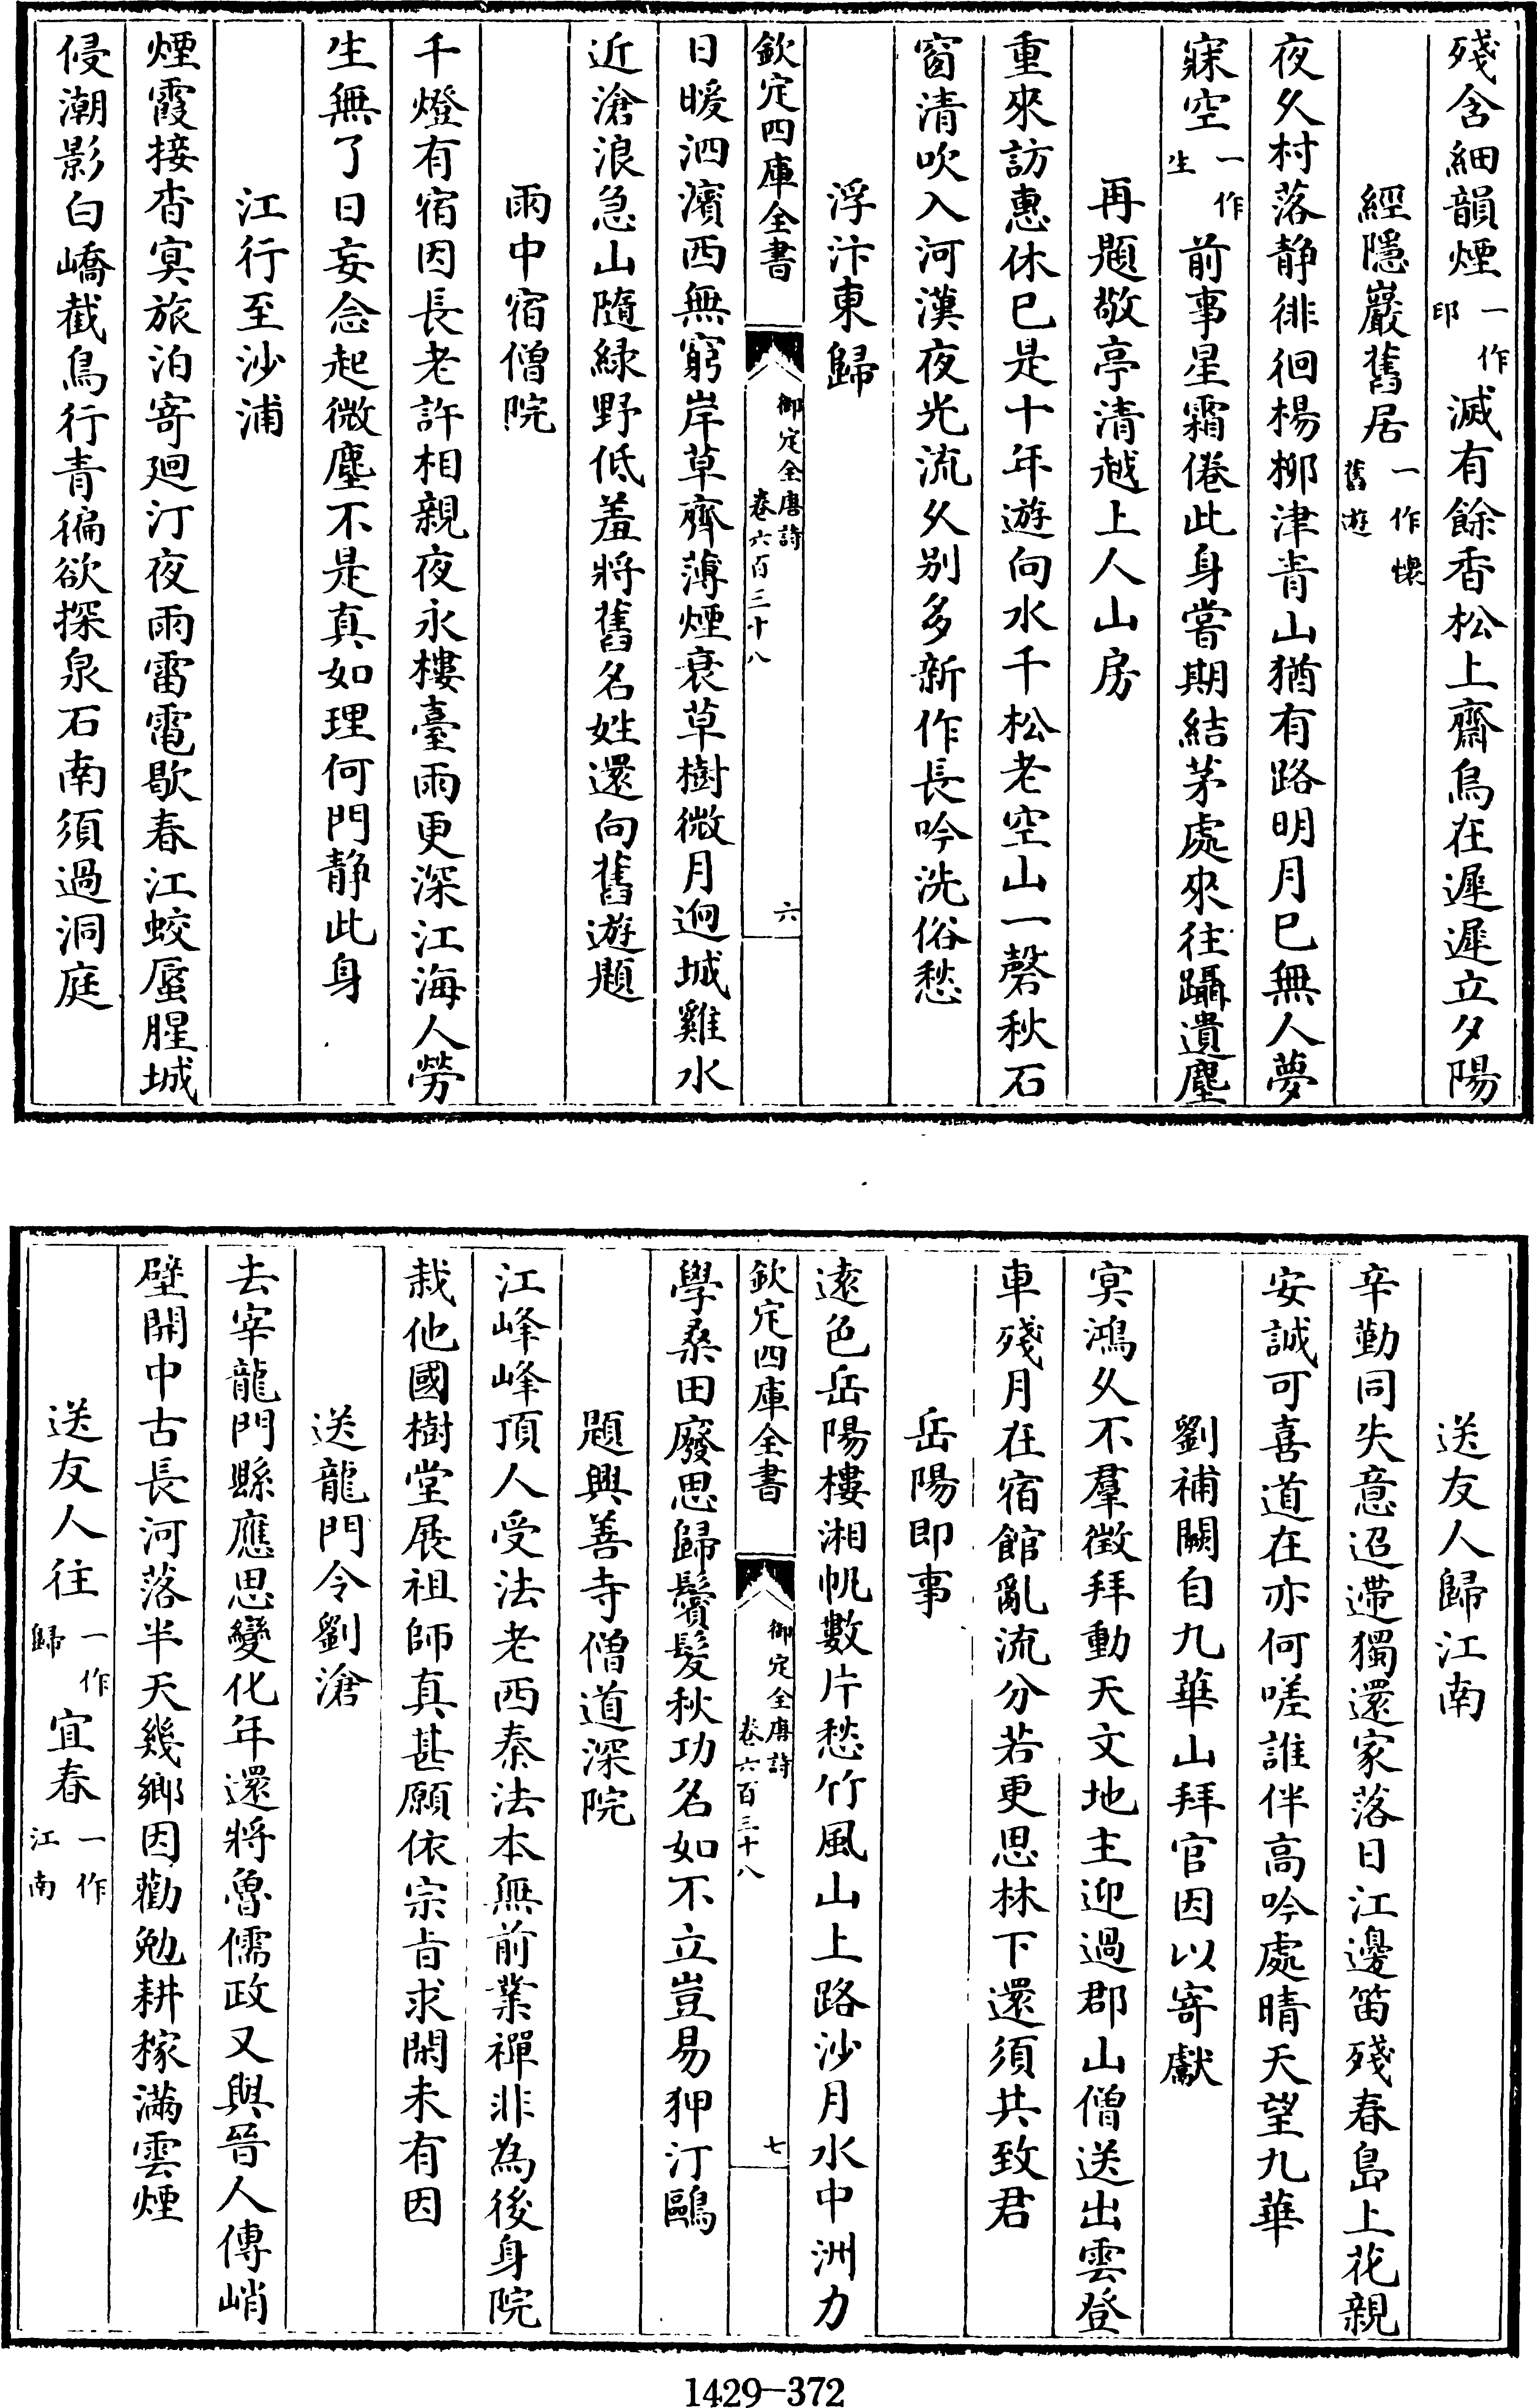 殘含細韻煙一作印滅有餘香松上齋烏在遲遲立夕陽
經隱巖舊居一作懷舊遊
夜久村落靜徘徊楊柳津青山猶有路明月已無人夢
寐空一作生前事星霜倦此身嘗期結茅處來往躡遺塵
再題敬亭清越上人山房
重來訪惠休已是十年遊向水千松老空山一磬秋石
窗清吹入河漢夜光流久别多新作長吟洗俗愁
浮汴東歸
欽定四庫全書
御定全唐詩
卷六百三十八
六
日暖泗濱西無窮岸草齊薄煙衰草樹微月逈城雞水
近滄浪急山隨緑野低羞將舊名姓還向舊遊題
雨中宿僧院
千燈有宿因長老許相親夜永樓臺雨更深江海人勞
生無了日妄念起微塵不是真如理何門靜此身
江行至沙浦
煙霞接杳冥旅泊寄廻汀夜雨雷電歇春江蛟蜃腥城
侵潮影白嶠截鳥行青徧欲探泉石南須過洞庭
送友人歸江南
辛勤同失意迢遰獨還家落日江邊笛殘春島上花親
安誠可喜道在亦何嗟誰伴高吟處晴天望九華
劉補闕自九華山拜官因以寄獻
冥鴻久不羣徵拜動天文地主迎過郡山僧送出雲登
車殘月在宿館亂流分若更思林下還須共致君
岳陽即事
遠色岳陽樓湘帆數片愁竹風山上路沙月水中洲力
欽定四庫全書
御定全唐詩
卷六百三十八
七
學桑田廢思歸鬢髮秋功名如不立豈易狎汀鷗
題興善寺僧道深院
江峰峰頂人受法老西秦法本無前業禪非為後身院
栽他國樹堂展祖師真甚願依宗旨求閑未有因
送龍門令劉滄
去宰龍門縣應思變化年還將魯儒政又與晉人傳峭
壁開中古長河落半天幾鄉因勸勉耕稼滿雲煙
送友人往一作歸宜春一作江南
1429-372